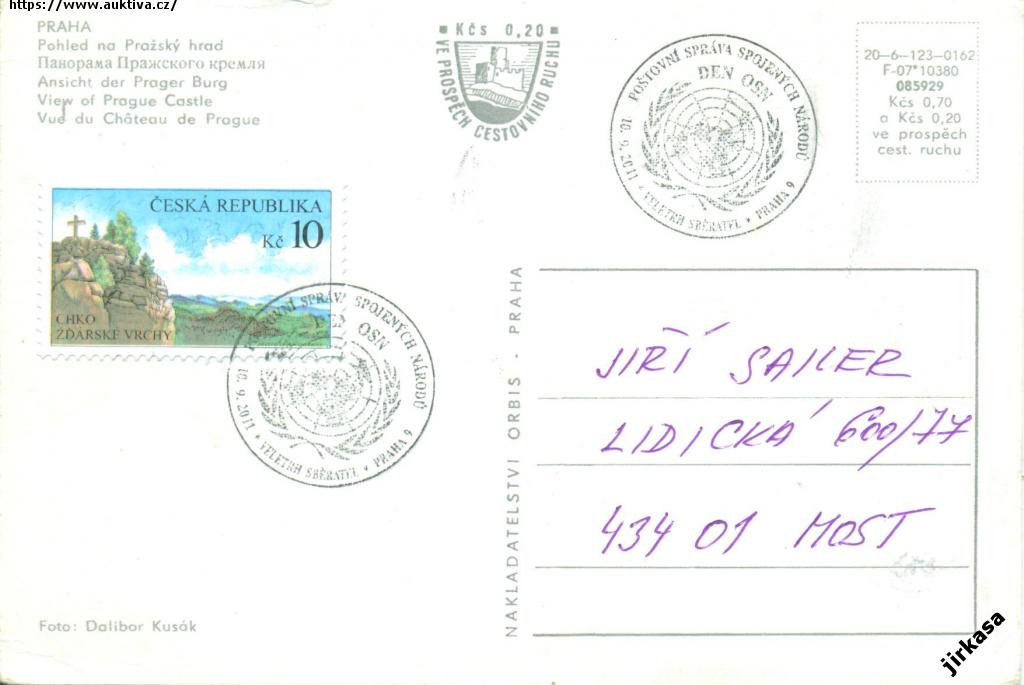 https://www.auktiva.cz/
PRAHA
Pohled na Pražský hrad
Панорама Пражского кремля
Ansicht der Prager Burg
View of Prague Castle
Vue du Château de Prague
Kčs 0,20
VE PROSPĚCH CESTOVNÍHO RUCHU
POŠTOVNÍ SPRÁVA SPOJENÝCH NÁRODŮ
DEN OSN
10.9.2011 • VELETRH SBĚRATEL • PRAHA 9
20-6-123-0162
F-07*10380
085929
Kčs 0,70
a Kčs 0,20
ve prospěch
cest. ruchu
ČESKÁ REPUBLIKA
Kč 10
CHKO
ŽĎÁRSKÉ VRCHY
POŠTOVNÍ SPRÁVA SPOJENÝCH NÁRODŮ
DEN OSN
10.9.2011 • VELETRH SBĚRATEL • PRAHA 9
NAKLADATELSTVÍ ORBIS - PRAHA
JIŘÍ SAILER
LIDICKÁ 600/77
434 01 MOST
Foto: Dalibor Kusák
jirkasa